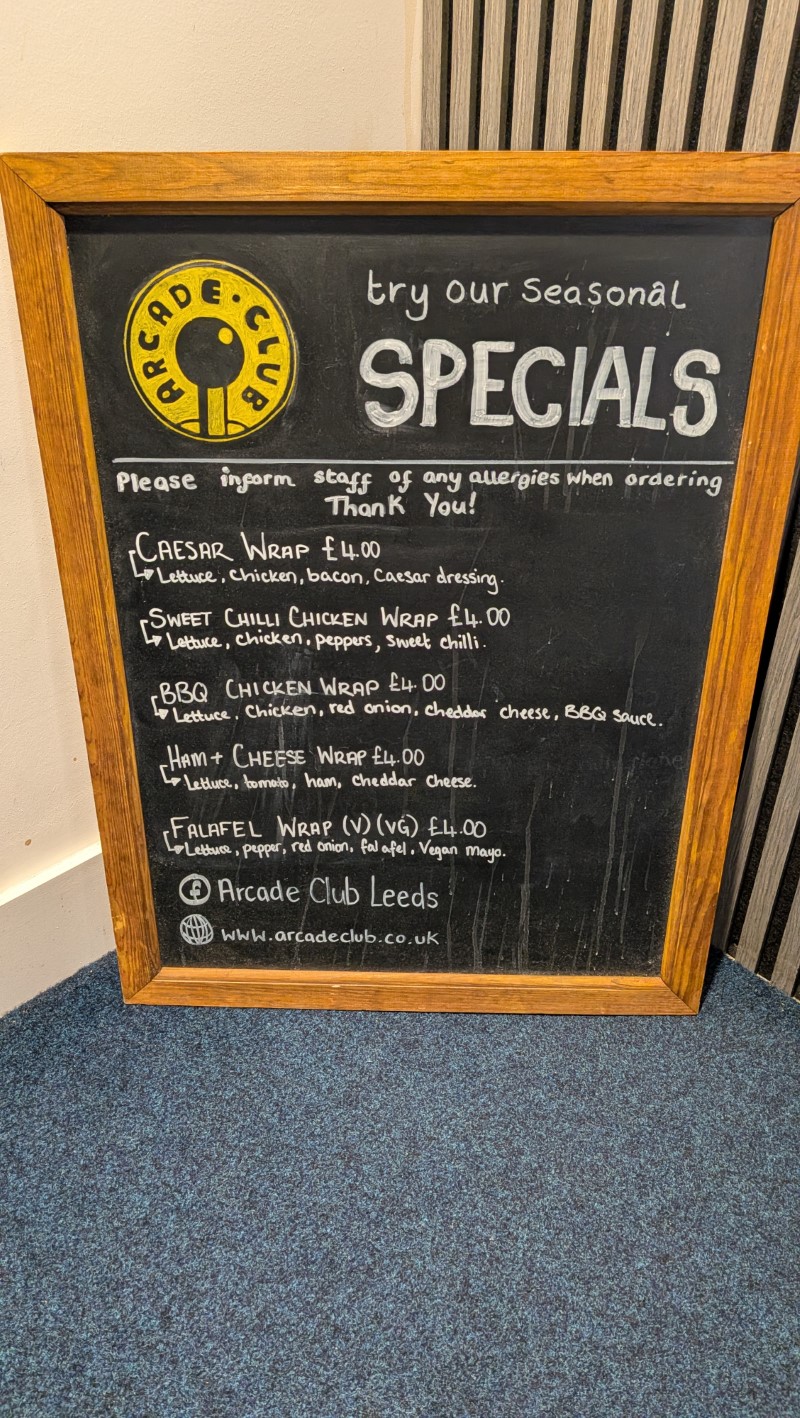 ARCADE · CLUB
try our seasonal
SPECIALS
Please inform staff of any allergies when ordering
Thank You!
CAESAR WRAP £4.00
Lettuce, chicken, bacon, Caesar dressing.
SWEET CHILLI CHICKEN WRAP £4.00
Lettuce, chicken, peppers, sweet chilli.
BBQ CHICKEN WRAP £4.00
Lettuce, Chicken, red onion, cheddar cheese, BBQ sauce.
HAM + CHEESE WRAP £4.00
Lettuce, tomato, ham, cheddar cheese.
FALAFEL WRAP (V) (VG) £4.00
Lettuce, pepper, red onion, falafel, Vegan mayo.
f Arcade Club Leeds
www.arcadeclub.co.uk